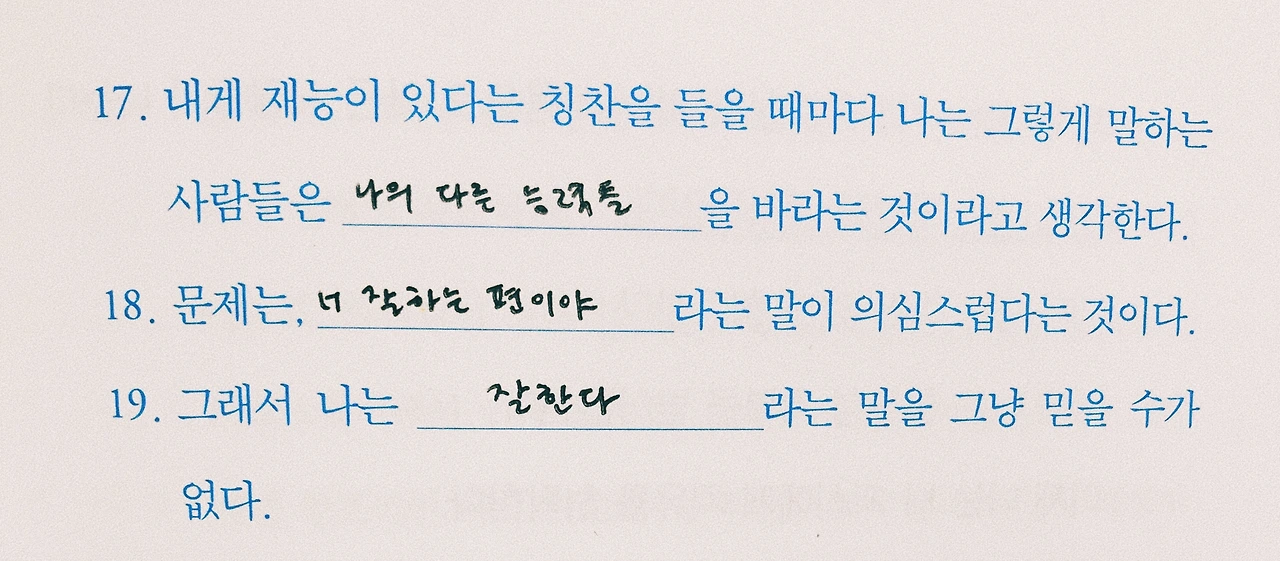 17. 내게 재능이 있다는 칭찬을 들을 때마다 나는 그렇게 말하는
사람들은 나의 다른 능력들 을 바라는 것이라고 생각한다.
18. 문제는, 너 잘하는 편이야 라는 말이 의심스럽다는 것이다.
19. 그래서 나는 잘한다 라는 말을 그냥 믿을 수가
없다.